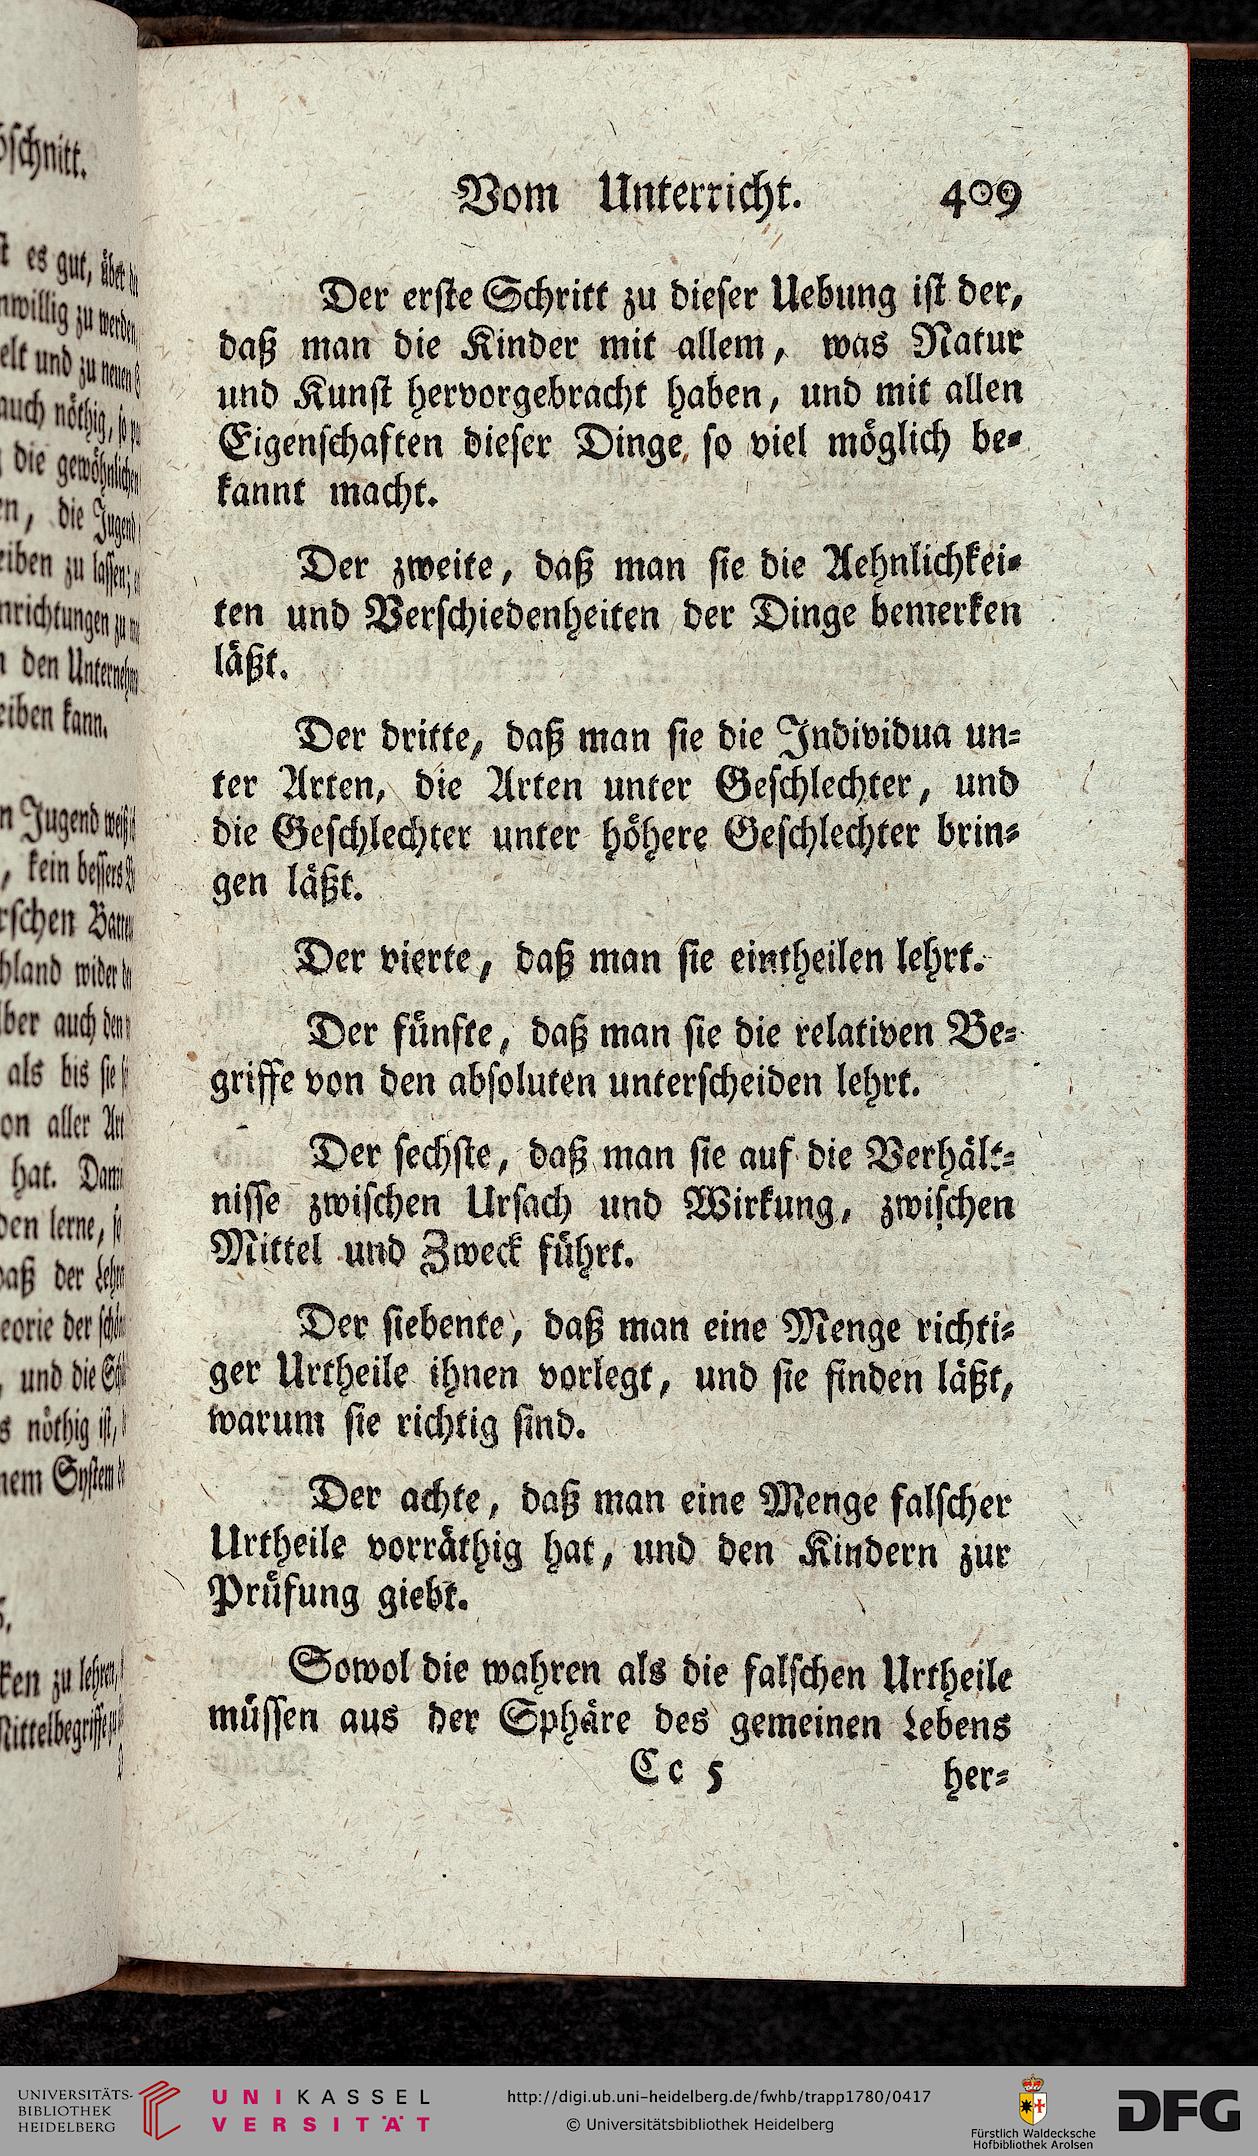 bschnitt.
es gut, über
nwillig zu werden,
elt und zu neuen
auch nöthig, so
die gewöhnlichen
en, die Jugend
eiben zu lassen;
nrichtungen zu
den Unternehm
eiben kann.
n Jugend weiß
, kein bessers
rschen
hland wider
ber auch den
als bis sie
on aller Art
hat.
den lerne, so
daß der
eorie der
, und die
s nöthig ist,
nem System
ken zu lehren,
Mittelbegriffe
Vom Unterricht. 409
Der erste Schritt zu dieser Uebung ist der,
daß man die Kinder mit allem, was Natur
und Kunst hervorgebracht haben, und mit allen
Eigenschaften dieser Dinge so viel möglich be-
kannt macht.
Der zweite, daß man sie die Aehnlichkei-
ten und Verschiedenheiten der Dinge bemerken
läßt.
Der dritte, daß man sie die Individua un-
ter Arten, die Arten unter Geschlechter, und
die Geschlechter unter höhere Geschlechter brin-
gen läßt.
Der vierte, daß man sie eintheilen lehrt.
Der fünfte, daß man sie die relativen Be-
griffe von den absoluten unterscheiden lehrt.
Der sechste, daß man sie auf die Verhält-
nisse zwischen Ursach und Wirkung, zwischen
Mittel und Zweck führt.
Der siebente, daß man eine Menge richti-
ger Urtheile ihnen vorlegt, und sie finden läßt,
warum sie richtig sind.
Der achte, daß man eine Menge falscher
Urtheile vorräthig hat, und den Kindern zur
Prüfung giebt.
Sowol die wahren als die falschen Urtheile
müssen aus der Sphäre des gemeinen Lebens
Cc 5 her-
UNIVERSITÄTS-
BIBLIOTHEK
HEIDELBERG
UNIKASSEL
VERSITÄT
http://digi.ub.uni-heidelberg.de/fwhb/trapp1780/0417
© Universitätsbibliothek Heidelberg
Fürstlich Waldecksche
Hofbibliothek Arolsen
DFG